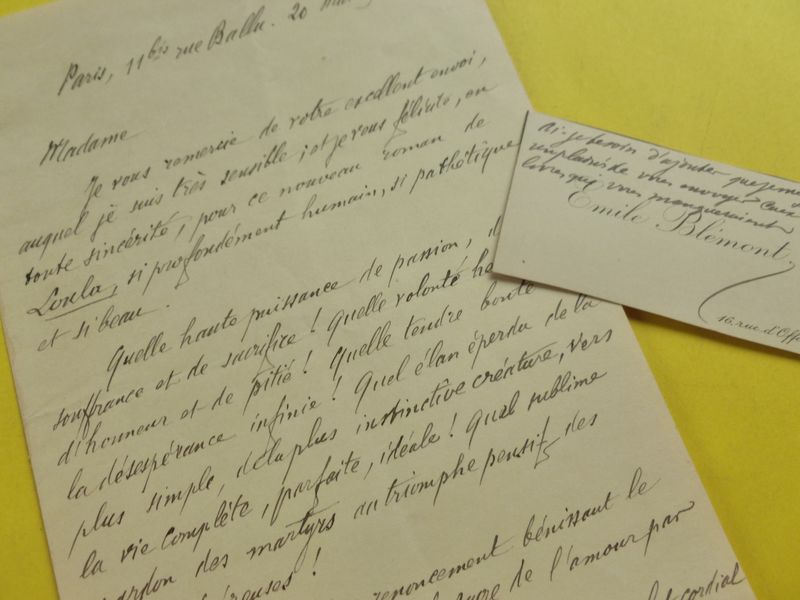 Paris, 11bis rue Ballu. 20
Madame
Je vous remercie de votre excellent envoi,
auquel je suis très sensible ; et je vous félicite, en
toute sincérité, pour ce nouveau roman de
Loula, si profondément humain, si pathétique
et si beau.
Quelle haute puissance de passion, d
souffrance et de sacrifice ! Quelle volonté
d'honneur et de pitié ! Quelle tendre bonté
la désespérance infinie ! Quel élan éperdu de la
plus simple, de la plus instinctive créature, vers
la vie complète, parfaite, idéale ! Quel sublime
pardon des martyrs au triomphe pensif des
renoncement bénissant le
de l'amour par
cordial
ai-je besoin d'ajouter que
de vous envoyer ceux
livres qui vous manqueraient
Emile Blémont.
16, rue d'Offé